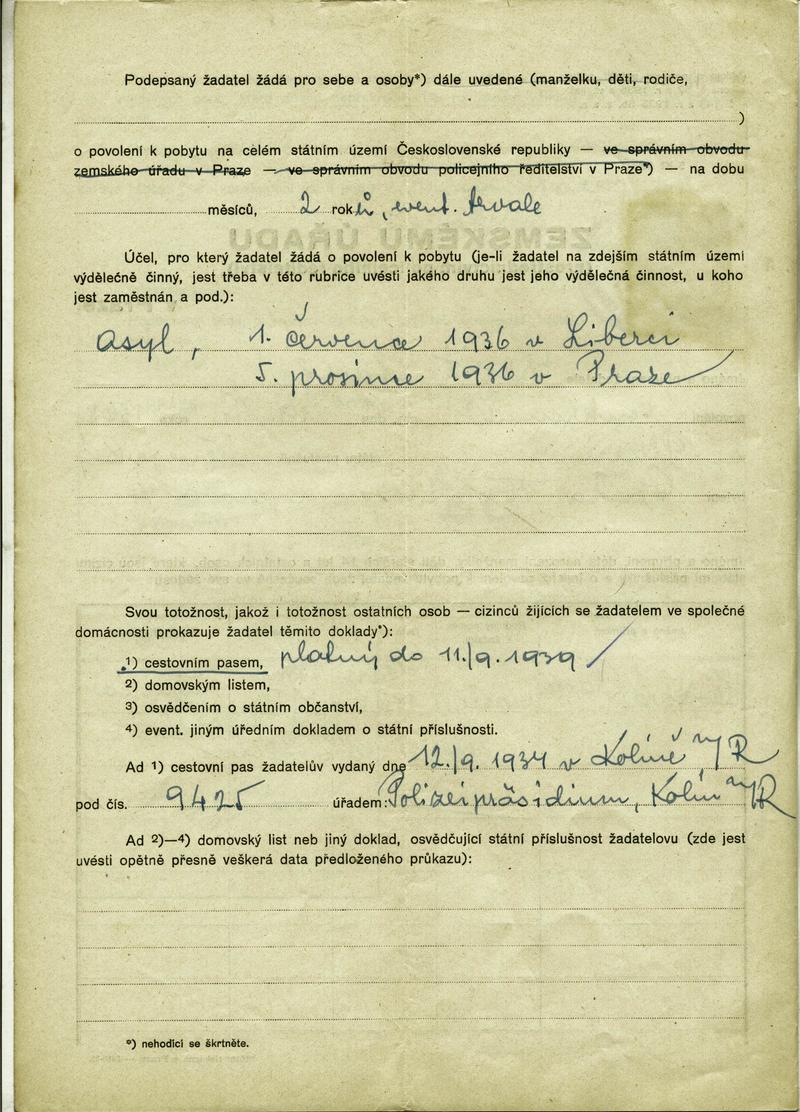 Podepsaný žadatel žádá pro sebe a osoby*) dále uvedené (manželku, děti, rodiče,
)
o povolení k pobytu na celém státním území Československé republiky — ve správním obvodu
zemského úřadu v Praze — ve správním obvodu policejního ředitelství v Praze*) — na dobu
měsíců, 2 roků, event. trvale
ZEMSKÉMU ÚŘADU
Účel, pro který žadatel žádá o povolení k pobytu (je-li žadatel na zdejším státním území
výdělečně činný, jest třeba v této rubrice uvésti jakého druhu jest jeho výdělečná činnost, u koho
jest zaměstnán a pod.):
Asyl, 1. července 1936 v Liberci
5. prosince 1936 v Praze
Svou totožnost, jakož i totožnost ostatních osob — cizinců žijících se žadatelem ve společné
domácnosti prokazuje žadatel těmito doklady*):
1) cestovním pasem, platný do 11./9. 1939
2) domovským listem,
3) osvědčením o státním občanství,
4) event. jiným úředním dokladem o státní příslušnosti.
Ad 1) cestovní pas žadatelův vydaný dne 12./9. 1934 v Kolíně n/R
pod čís. 9425 úřadem: Polizeipräsidium, Kolín n/R
Ad 2)—4) domovský list neb jiný doklad, osvědčující státní příslušnost žadatelovu (zde jest
uvésti opětně přesně veškerá data předloženého průkazu):
*) nehodící se škrtněte.